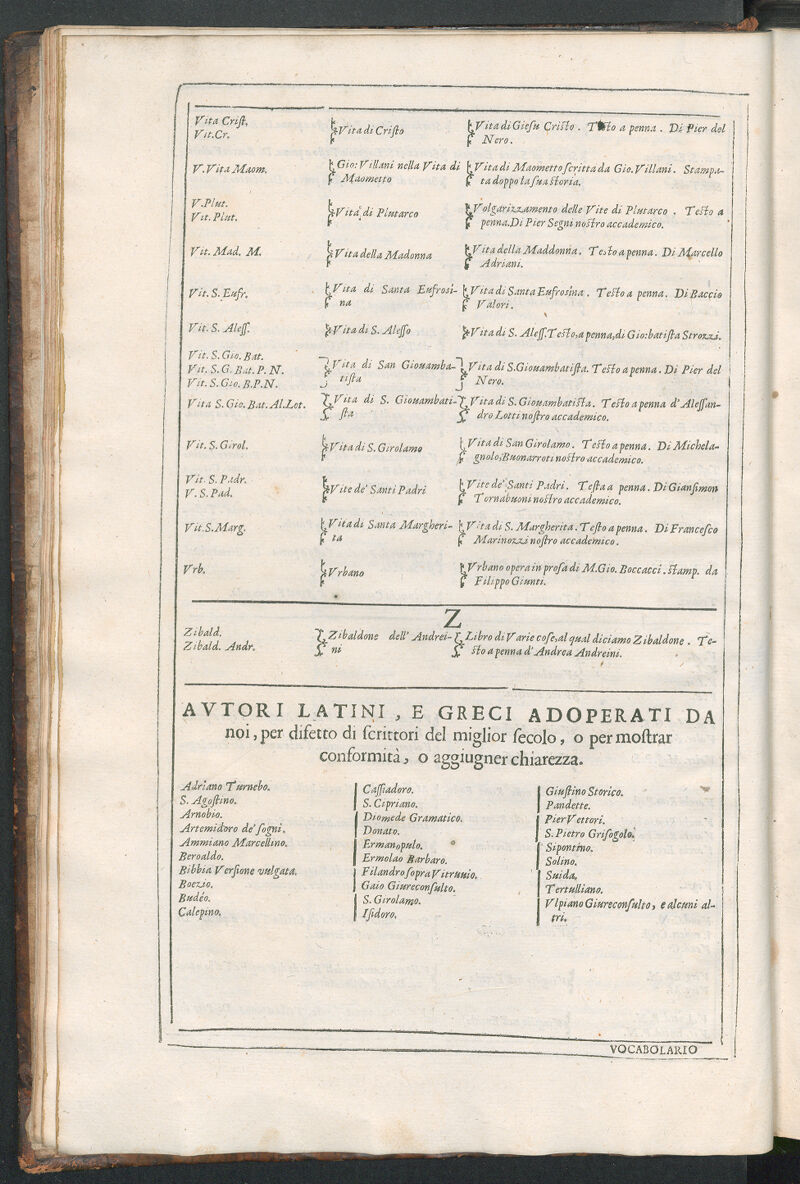 Vita Criſt.
Vit.Cr.
Vita di Criſto
Vita di Gieſu Criſto . Teſto a penna . Di Pier del
Nero .
V.Vita Maom.
Gio: Villani nella Vita di
Maometto
Vita di Maometto ſcritta da Gio. Villani . Stampa-
ta doppo la ſua ſtoria.
V.Plut.
Vit. Plut.
Vita di Plutarco
Volgarizzamento delle Vite di Plutarco . Teſto a
penna. Di Pier Segni noſtro accademico.
Vit. Mad. M.
Vita della Madonna
Vita della Maddonna . Teſto a penna . Di Marcello
Adriani.
Vit. S. Eufr.
Vita di Santa Eufroſi-
na
Vita di Santa Eufroſina . Teſto a penna . Di Baccio
Valori .
Vit. S. Aleſſ.
Vita di S. Aleſſo
Vita di S. Aleſſ. Teſto, a penna, di Gio:batiſta Strozzi.
Vit. S. Gio. Bat.
Vit. S. G. Bat. P. N.
Vit. S. Gio. B.P.N.
Vita di San Giouamba-
tiſta
Vita di S.Giouambatiſta. Teſto a penna . Di Pier del
Nero.
Vita S. Gio. Bat. Al.Lot.
Vita di S. Giouambati-
ſta
Vita di S. Giouambatiſta . Teſto a penna d' Aleſſan-
dro Lotti noſtro accademico.
Vit. S. Girol.
Vita di S. Girolamo
Vita di San Girolamo . Teſto a penna . Di Michela-
gnolo, Buonarroti noſtro accademico.
Vit. S. Padr.
V. S. Pad.
Vite de' Santi Padri
Vite de' Santi Padri . Teſta a penna . Di Gianſimon
Tornabuoni noſtro accademico.
Vit.S.Marg.
Vita di Santa Margheri-
ta
Vita di S. Margherita . Teſto a penna . Di Franceſco
Marinozzi noſtro accademico .
Vrb.
Vrbano
Vrbano opera in proſa di M.Gio. Boccacci . ſtamp. da
Filippo Giunti.
Z
Zibald.
Zibald. Andr.
Zibaldone dell' Andrei-
ni
Libro di Varie coſe, al qual diciamo Zibaldone . Te-
ſto a penna d' Andrea Andreini.
AVTORI LATINI , E GRECI ADOPERATI DA
noi, per difetto di ſcrittori del miglior ſecolo, o per moſtrar
conformità, o aggiugner chiarezza.
Adriano Turnebo.
S. Agoſtino.
Arnobio.
Artemidoro de' ſogni.
Ammiano Marcellino.
Beroaldo.
Bibbia Verſione vulgata.
Boezio.
Budéo.
Calepino.
Caſſiadoro.
S. Cipriano.
Diomede Gramatico.
Donato.
Ermanopulo.
Ermolao Barbaro.
Filandro ſopra Vitruuio.
Gaio Giureconſulto.
S. Girolamo.
Iſidoro.
Giuſtino Storico.
Pandette.
Pier Vettori.
S. Pietro Griſogolo.
Sipontino.
Solino.
Suida.
Tertulliano.
Vlpiano Giureconſulto, e alcuni al-
tri.
VOCABOLARIO